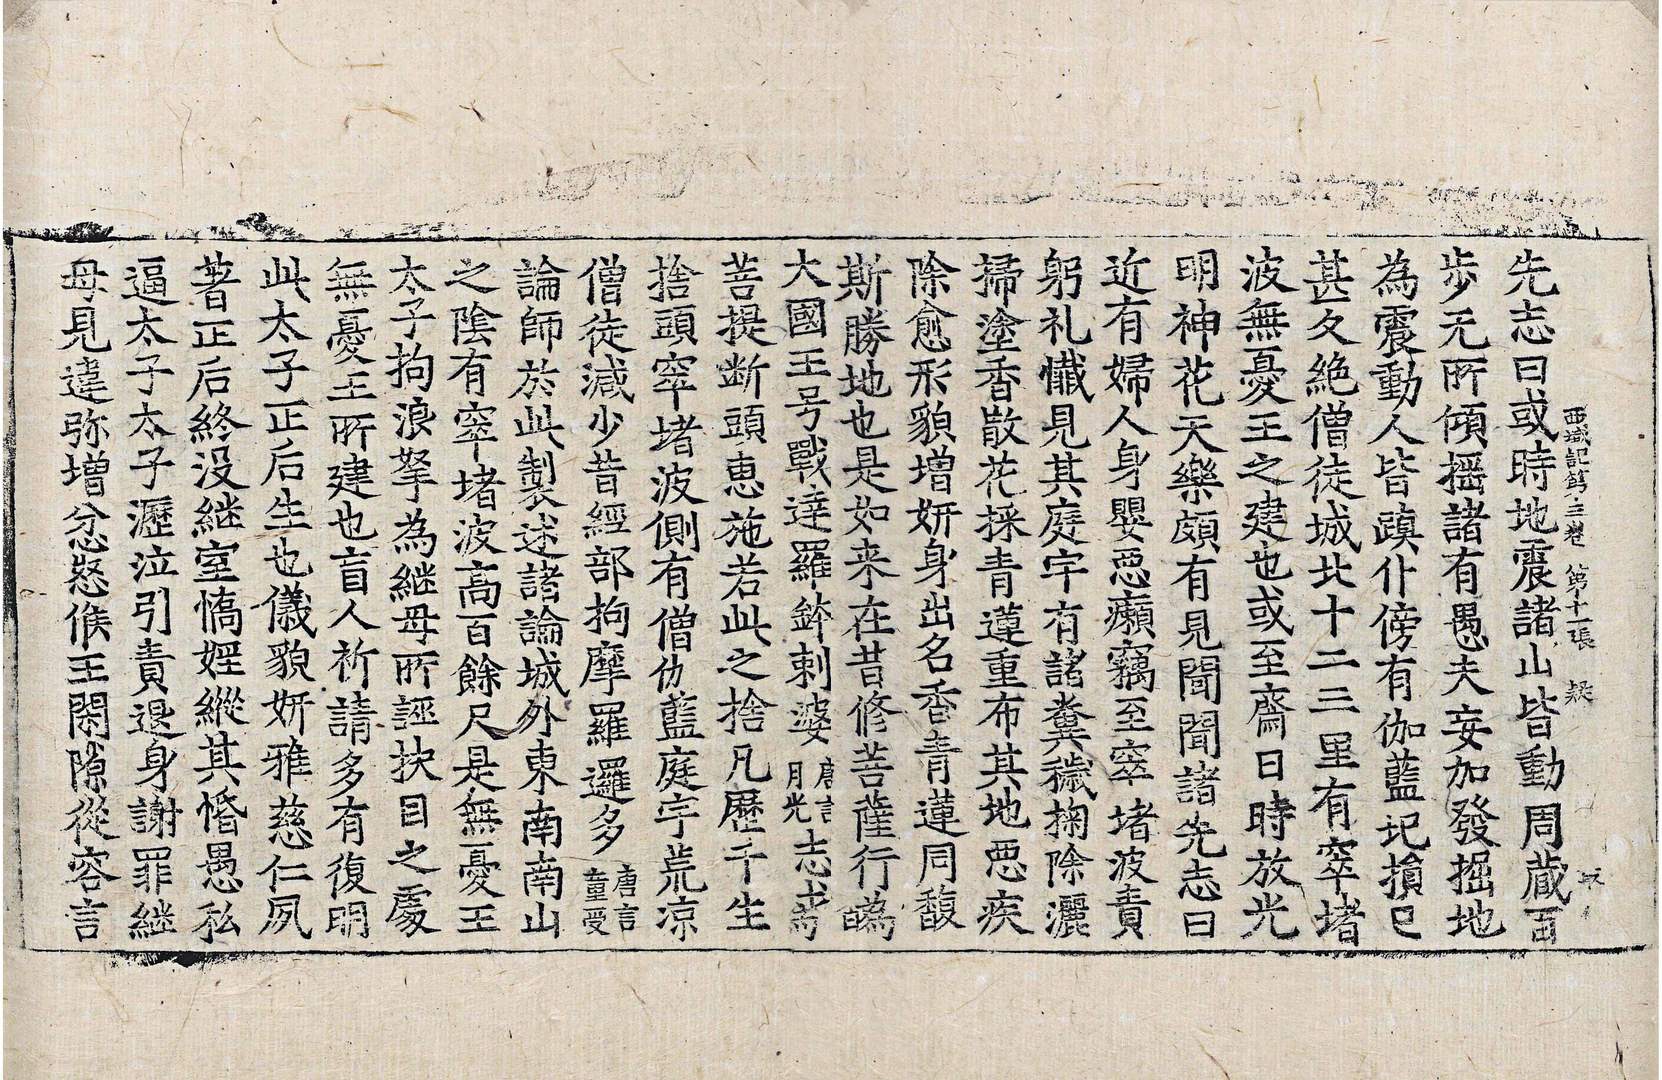 先志曰或時地震諸山皆動周藏百
西域記第三卷 第十一張 疑
步无所傾揺諸有愚夫妄加發掘地
為震動人皆蹎仆傍有伽藍圯損已
甚久絶僧徒城北十二三里有窣堵
波無憂王之建也或至齋日時放光
明神花天樂頗有見聞聞諸先志曰
近有婦人身嬰惡癩竊至窣堵波責
躬礼懺見其庭宇有諸糞穢掬除灑
掃塗香散花採青蓮重布其地惡疾
除愈形貌增妍身出名香青蓮同馥
斯勝地也是如来在昔修菩薩行為
大國王号戰達羅鉢剌婆唐言月光志求
菩提断頭恵施若此之捨凡歷千生
捨頭窣堵波側有僧伽藍庭宇荒凉
僧徒減少昔經部拘摩羅邏多唐言童受
論師於此製述諸論城外東南南山
之陰有窣堵波高百餘尺是無憂王
太子拘浪拏為継母所誣抉目之處
無憂王所建也盲人祈請多有復明
此太子正后生也儀貌妍雅慈仁夙
著正后終没継室憍婬縱其惛愚私
逼太子太子瀝泣引責退身謝罪継
母見違弥增忿怒候王閑隙從容言